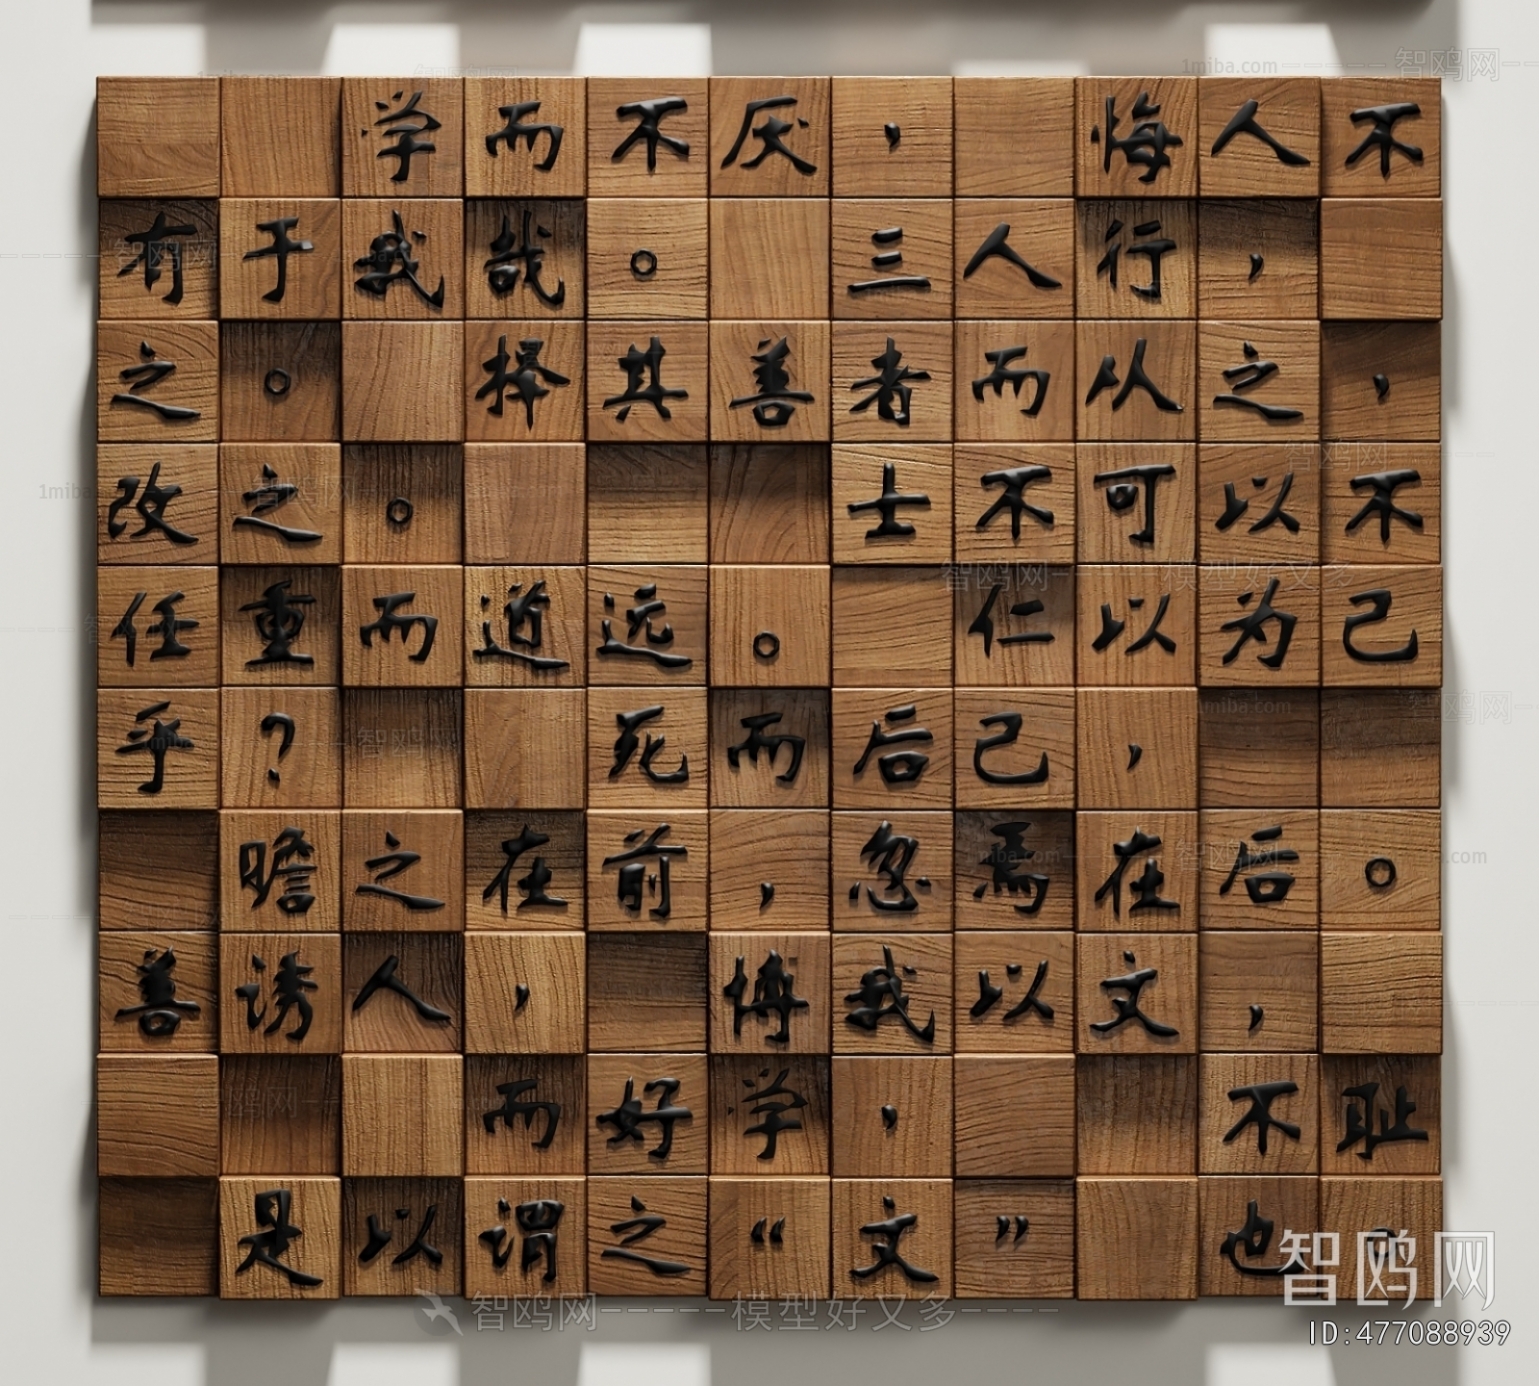 学而不厌，悔人不
有于我哉。三人行，
之。择其善者而从之，
改之。士不可以不
任重而道远。仁以为己
乎？死而后己，
瞻之在前，忽焉在后。
善诱人，博我以文，
而好学，不耻
是以谓之“文”也。
智鸥网-----模型好又多----
智鸥网
ID:477088939